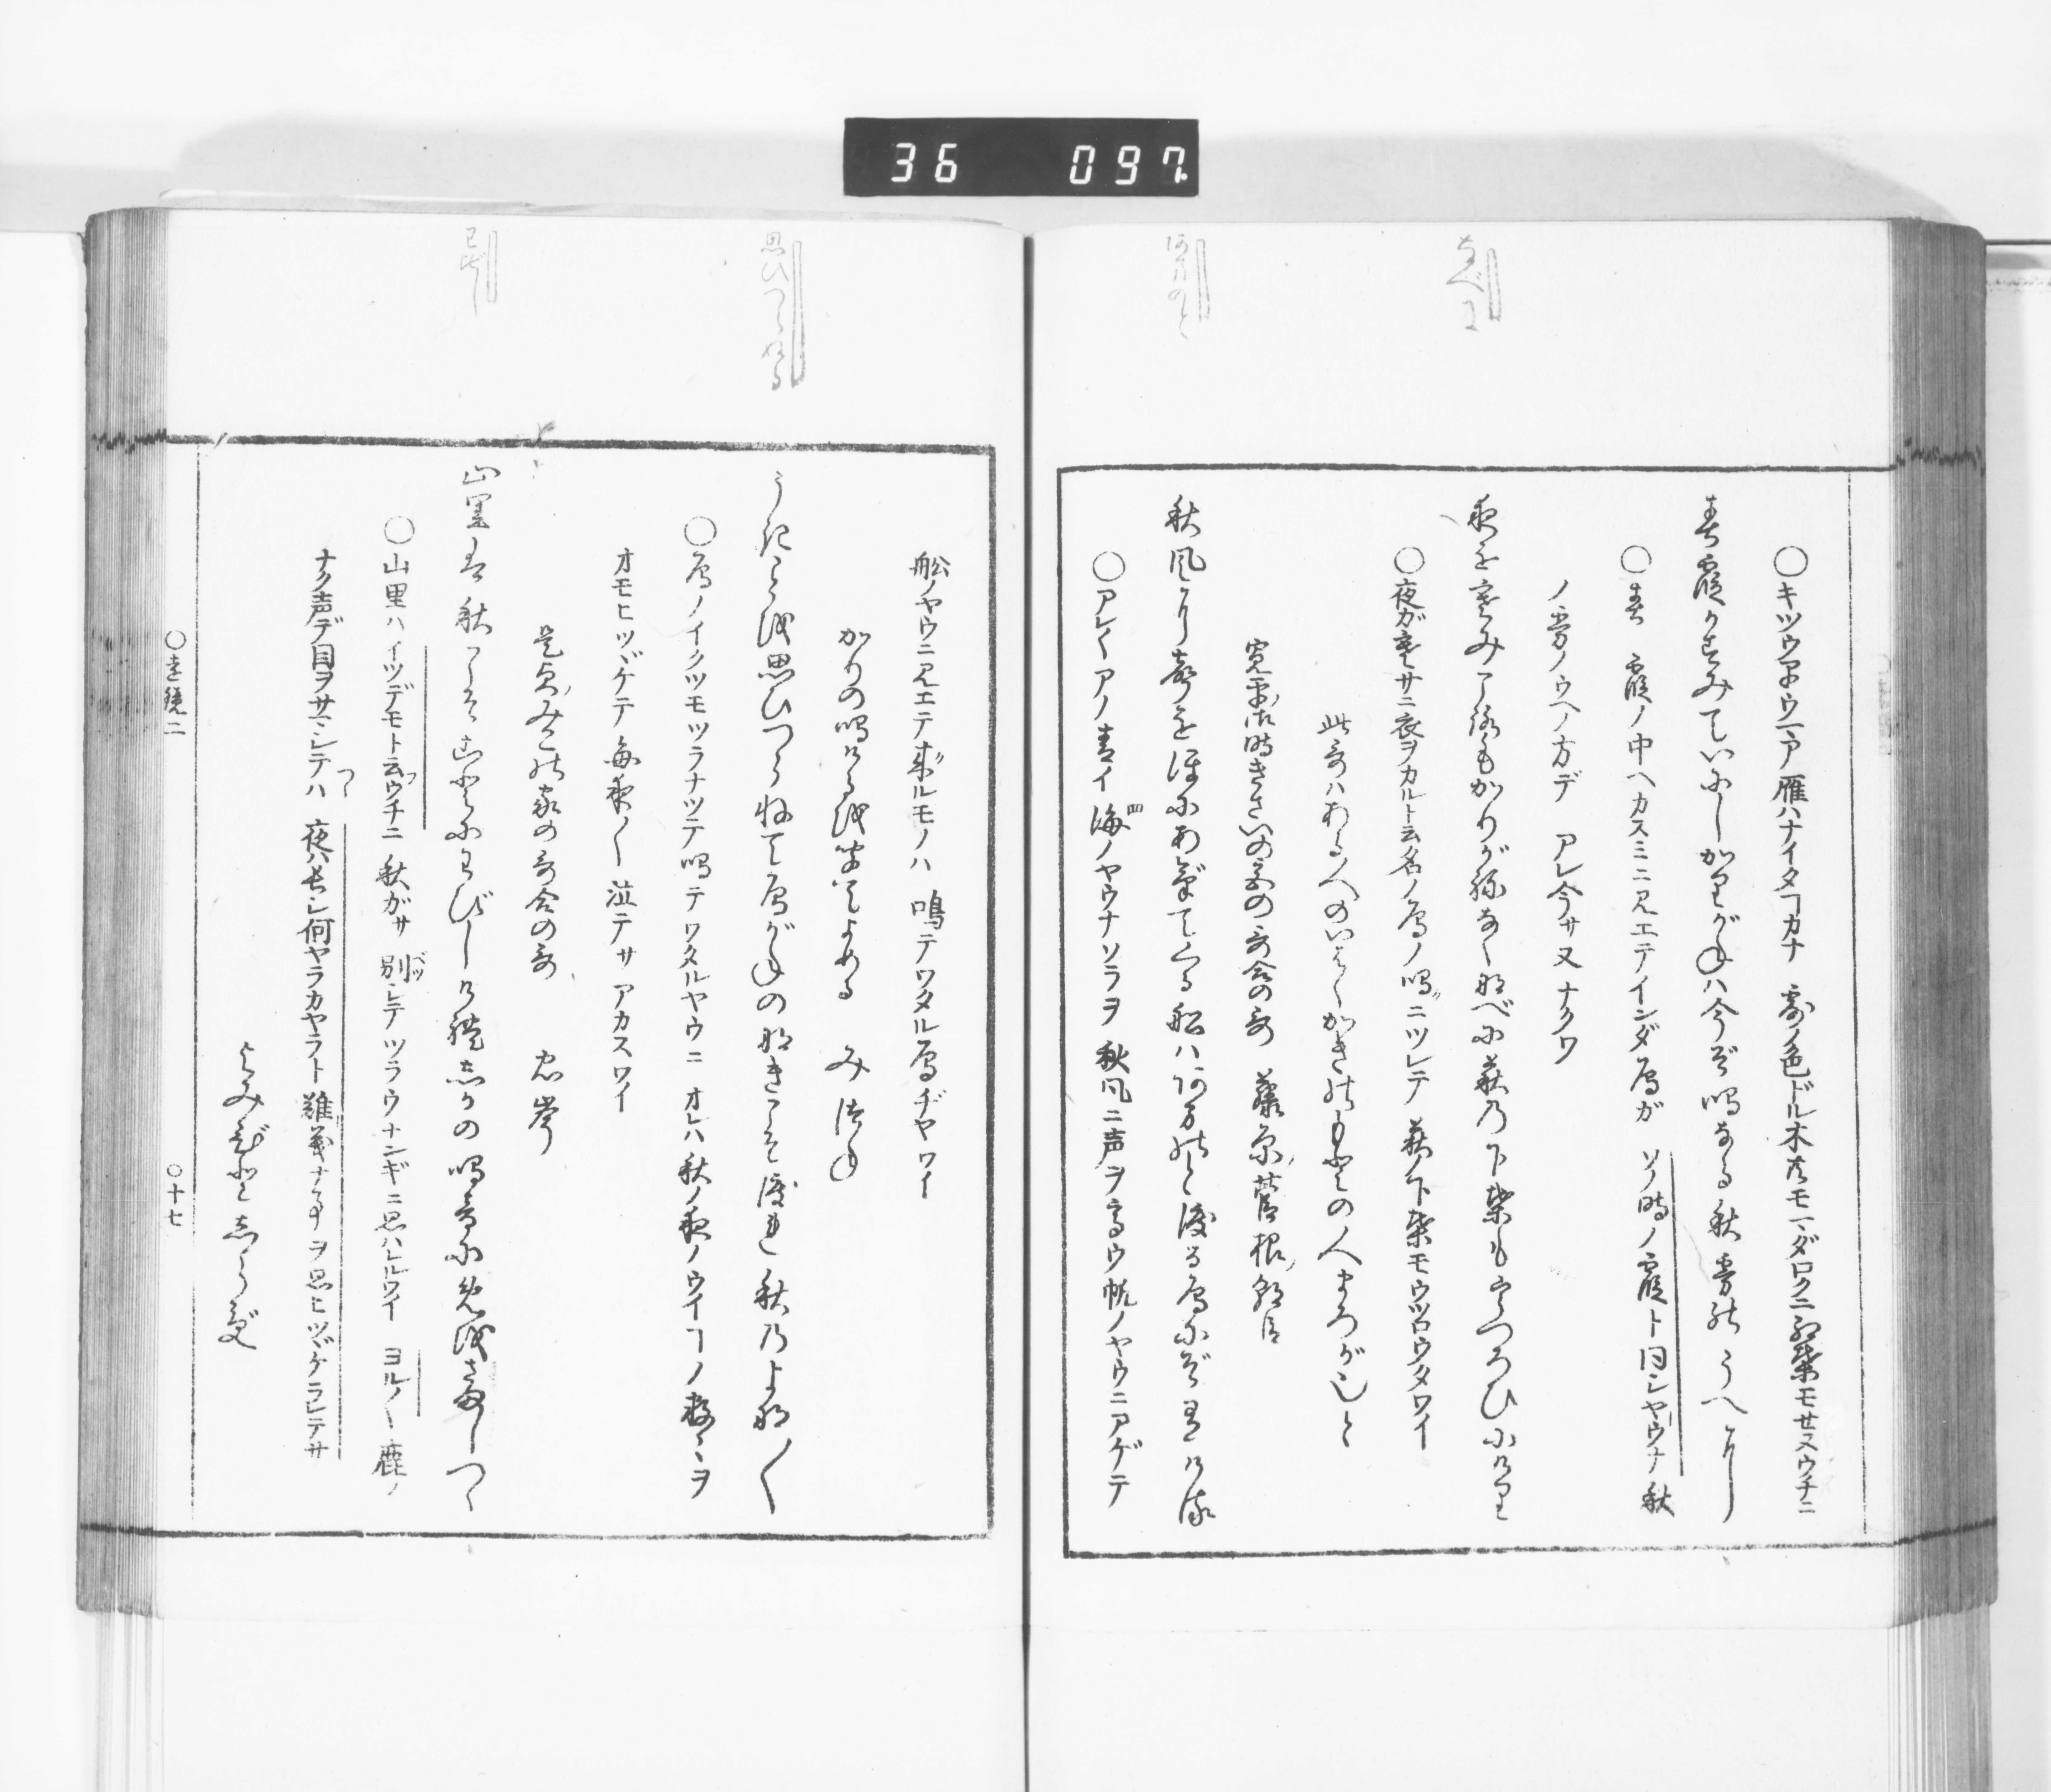 36 097
なべに
阿まのと
○キツウマウニア雁ハナイタヿカナ 露ノ色ドル木ドモマダロクニ紅葉モセヌウチニ
春霞かすみていにしかりがねハ今ぞ鳴なる秋霧のうへに
○春 霞ノ中ヘカスミニ見エテインダ鴈ガ ソノ時ノ霞ト同シヤウナ秋
ノ霧ノウヘノ方デ アレ今サ又ナクワ
夜を寒み衣かりがねなくなべに萩の下葉もうつろひにけり
○夜ガ寒サニ衣ヲカルト云名ノ鴈ノ鳴ニツレテ 萩ノ下葉モウツロウタワイ
此哥ハある人のいはくかきのもとの人まろが也と
寛平御時きさいの宮の哥合の哥 藤原菅根朝臣
秋風に声をほにあげてくる船ハ阿まのと渡る鴈にぞ有ける
○アレ〱アノ青イ海ノヤウナソラヲ 秋風ニ声ヲ高ウ帆ノヤウニアゲテ
思ひつらねる
わびし
船ノヤウニ見エテ来ルモノハ 鳴テワタル鴈ヂヤワイ
かりの鳴けるを聞てよめる みつね
うきことを思ひつらねて鴈がねの鳴きこそ渡れ秋のよな〱
○鴈ノイクツモツラナツテ鳴テワタルヤウニ オレハ秋ノ夜ノウイヿノ数々ヲ
オモヒツヾケテ毎夜〱泣テサ アカスワイ
是貞みこの家の哥合の哥 忠岑
山里ハ秋こそことにわびしけれしかの鳴音にめをさましつゝ
○山里ハイツデモト云ウチニ 秋ガサ 別シテツラウナンギニ思ハレルワイ ヨル〱鹿ノ
ナク声デ目ヲサマシテハ 夜ハ長シ何ヤラカヤラト難義ナ事ヲ思ヒツヾケラレテサ
よみ人しらず
○遠鏡二 ○十七